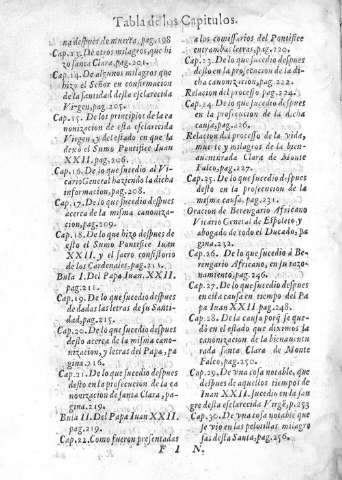 Tabla de los Capitulos.
na despues de muerta, pag.198
Cap.13. De otros milagros, que hi
zo santa Clara, pag.201.
Cap.14. De algunos milagros que
hizo el Señor en confirmacion
de la santidad desta esclarecida
Virgen, pag.205.
Cap.15. De los principios de la ca
nonizacion de esta esclarecida
Virgen, y del estado en que la
dexò el Sumo Pontifice Iuan
XXII. pag.206.
Cap.16. De lo que sucedio al Vi-
cario General haziendo la dicha
informacion, pag.208.
Cap.17. De lo que sucedio despues
acerca de la misma canoniza-
cion, pag.209.
Cap.18. De lo que hizo despues de
esto el Sumo Pontifice Iuan
XXII. y el sacro consistorio
de los Cardenales, pag.211.
Bula I. Del Papa Iuan XXII.
pag.211.
Cap.19. De lo que sucedio despues
de dadas las letras de su Santi-
dad, pag.215.
Cap.20. De lo que sucedio despues
desto acerca de la misma cano-
nizacion, y letras del Papa, pa
gina.216.
Cap.21. De lo que sucedio despues
desto en la prosecucion de la ca
nonizacion de santa Clara, pa-
gina.219.
Bula II. Del Papa Iuan XXII.
pag.219.
Cap.22. Como fueron presentadas
a los comissarios del Pontifice
entrambas letras, pag.220.
Cap.23. De lo que sucedio despues
desto en la prosecucion de la di-
cha canonizacion, pag.222.
Relacion del processo. pag.224.
Cap.24. De lo que sucedio despues
en la prosecucion de la dicha
causa, pag.226.
Relacion del processo de la vida,
muerte y milagros de la bien-
auenturada Clara de Monte
Falco, pag.227.
Cap.25. De lo que sucedio despues
desto en la prosecucion de la
misma causa, pag.231.
Oracion de Berengario Africano
Vicario General de Espoleto, y
abogado de todo el Ducado, pa
gina.232.
Cap.26. De lo que sucedio à Be-
ringario Africano, en su razo-
namiento, pag.246.
Cap.27. De lo que sucedio despues
en esta causa en tiempo del Pa
pa Iuan XXII pag.248.
Cap.28. De la causa porq̃ se que-
dò en el estado que diximos la
canonizacion de la bienauentu
rada santa Clara de Monte
Falco, pag.250.
Cap.29. De vna cosa notable, que
despues de aquellos tiempos de
Iuan XXII. sucedio en la san
gre desta esclarecida Virgẽ, p.253
Cap.30. De vna cosa notable que
se vio en las pelotillas milagro
sas desta Santa, pag.256.
F I N.